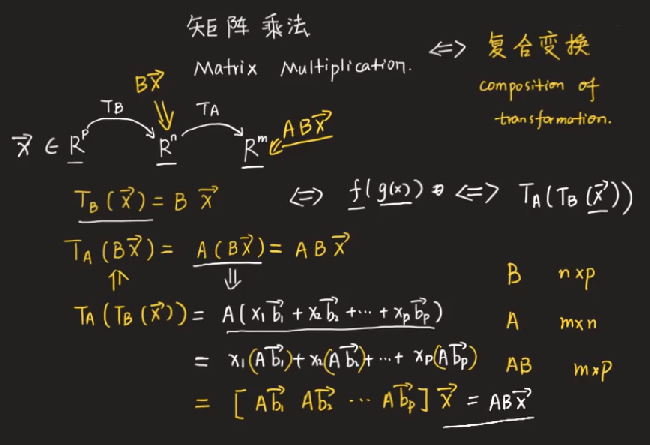 矩阵 乘法
Matrix Multiplication.
⟺ 复合变换
composition of
transformation.
Bx⃗
T_B T_A
x⃗ ∈ R^p R^n R^m ABx⃗
T_B(x⃗) = B x⃗ ⟺ f(g(x)) ⟺ T_A(T_B(x⃗))
T_A(Bx⃗) = A(Bx⃗) = ABx⃗
B n×p
T_A(T_B(x⃗)) = A(x₁b⃗₁ + x₂b⃗₂ + ⋯ + x_p b⃗_p)
A m×n
= x₁(Ab⃗₁) + x₂(Ab⃗₂) + ⋯ + x_p(Ab⃗_p)
AB m×p
= [Ab⃗₁ Ab⃗₂ ⋯ Ab⃗_p] x⃗ = ABx⃗